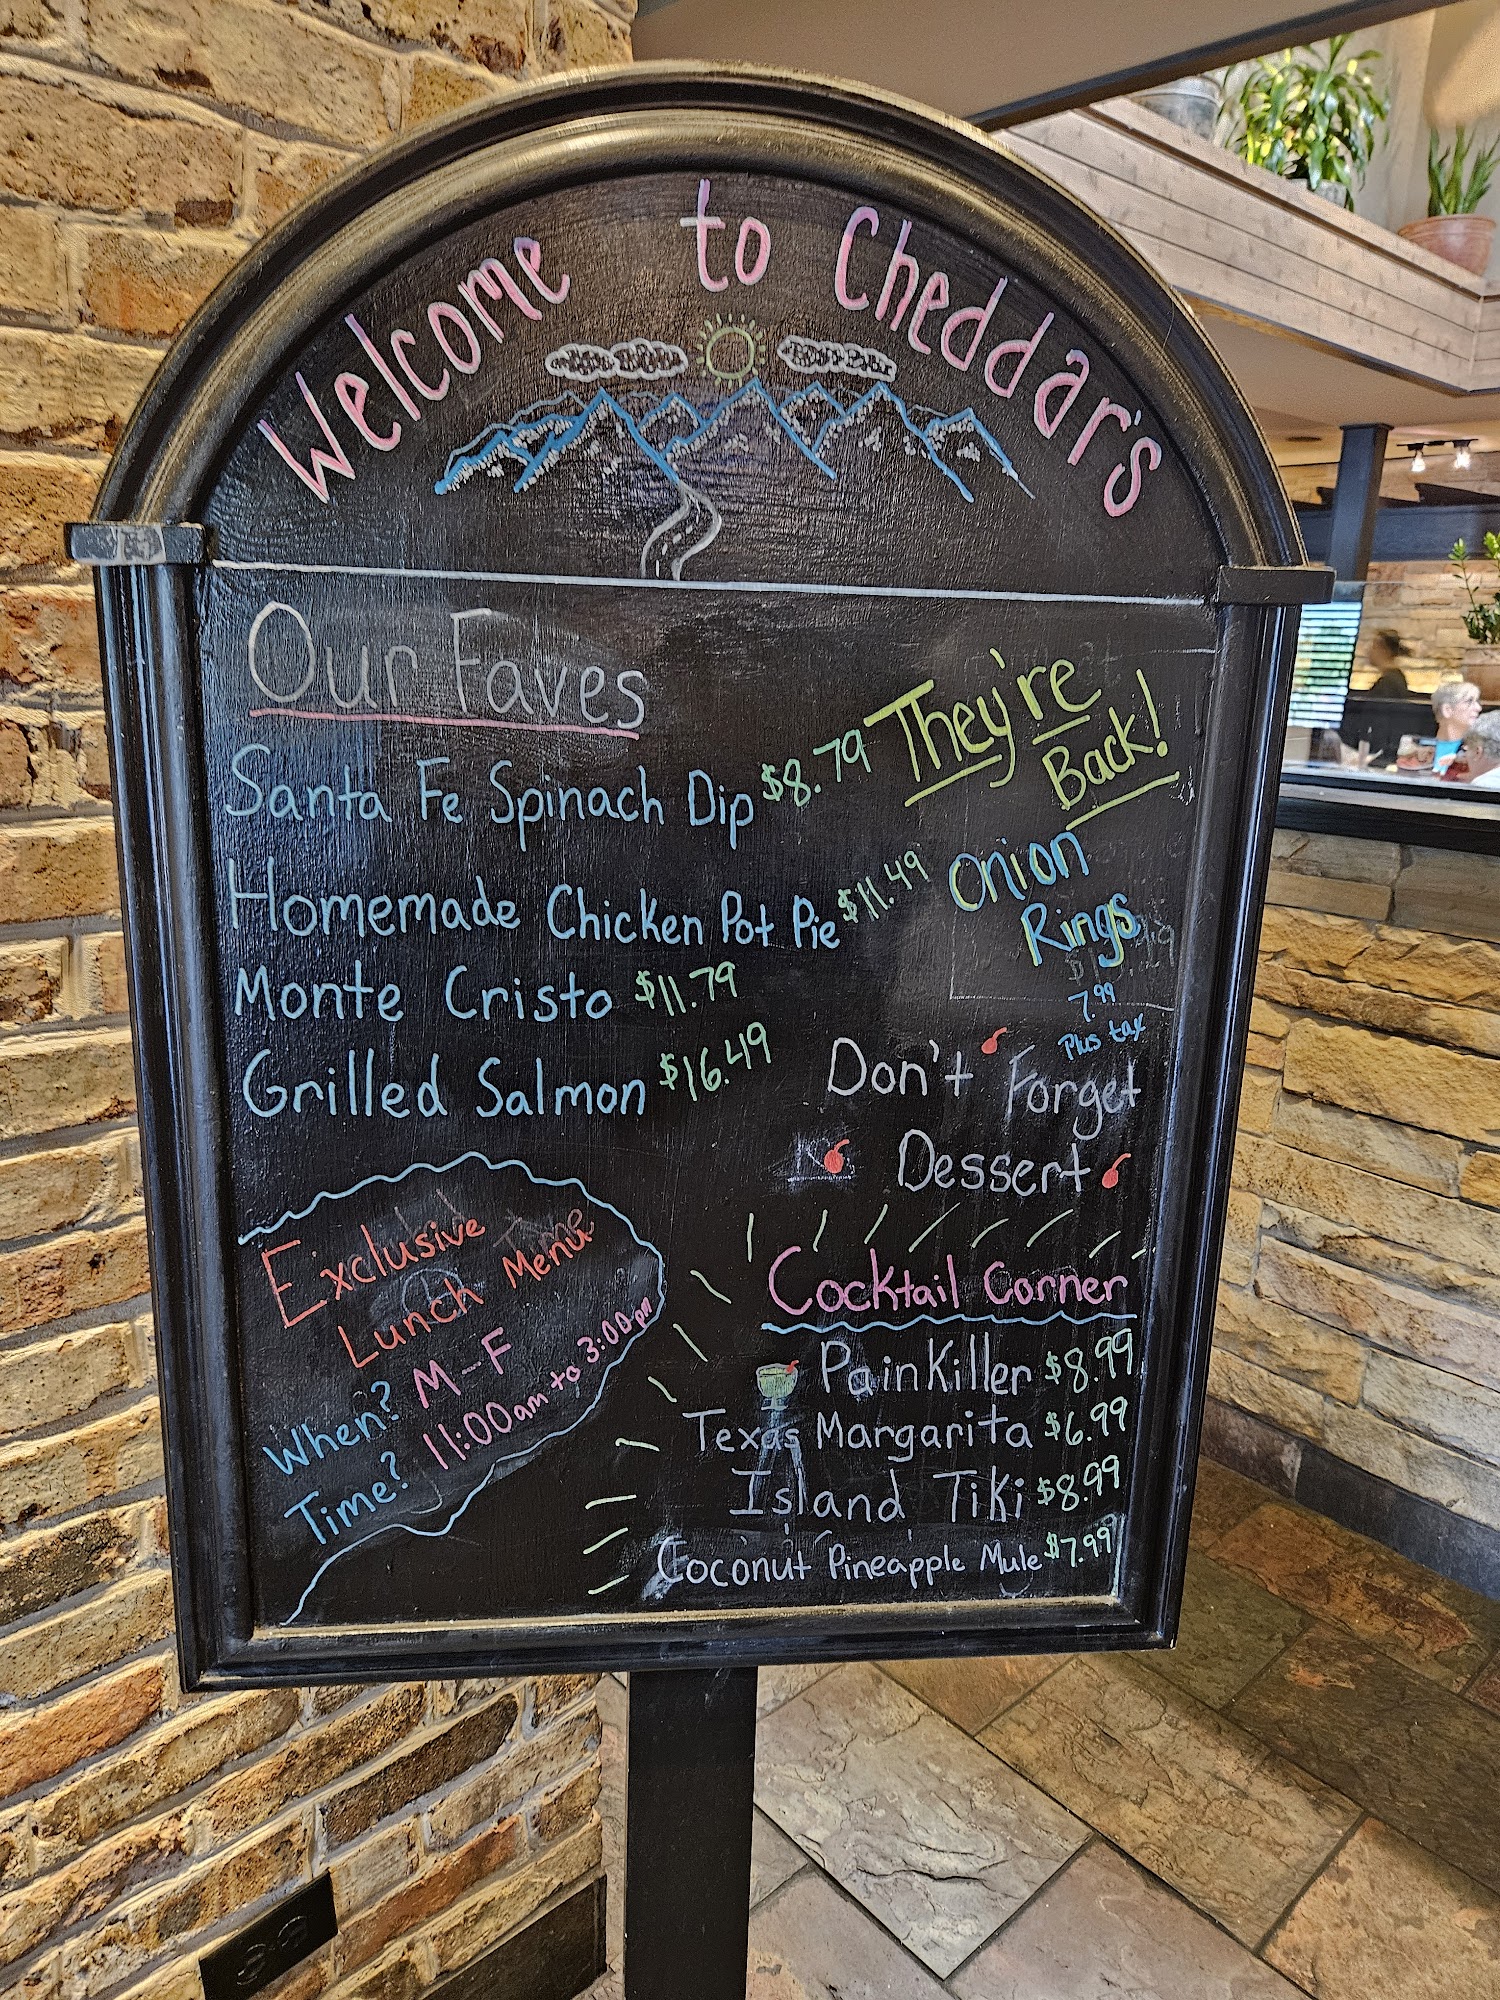 Welcome to Cheddar's
Our Faves
Santa Fe Spinach Dip $8.79
Homemade Chicken Pot Pie $11.49
Monte Cristo $11.79
Grilled Salmon $16.49
They're
Back!
Onion
Rings
7.99
Plus tax
Don't Forget
Dessert
Exclusive
Lunch Menu
When? M-F
Time? 11:00am to 3:00pm
Cocktail Corner
PainKiller $8.99
Texas Margarita $6.99
Island Tiki $8.99
Coconut Pineapple Mule $7.99